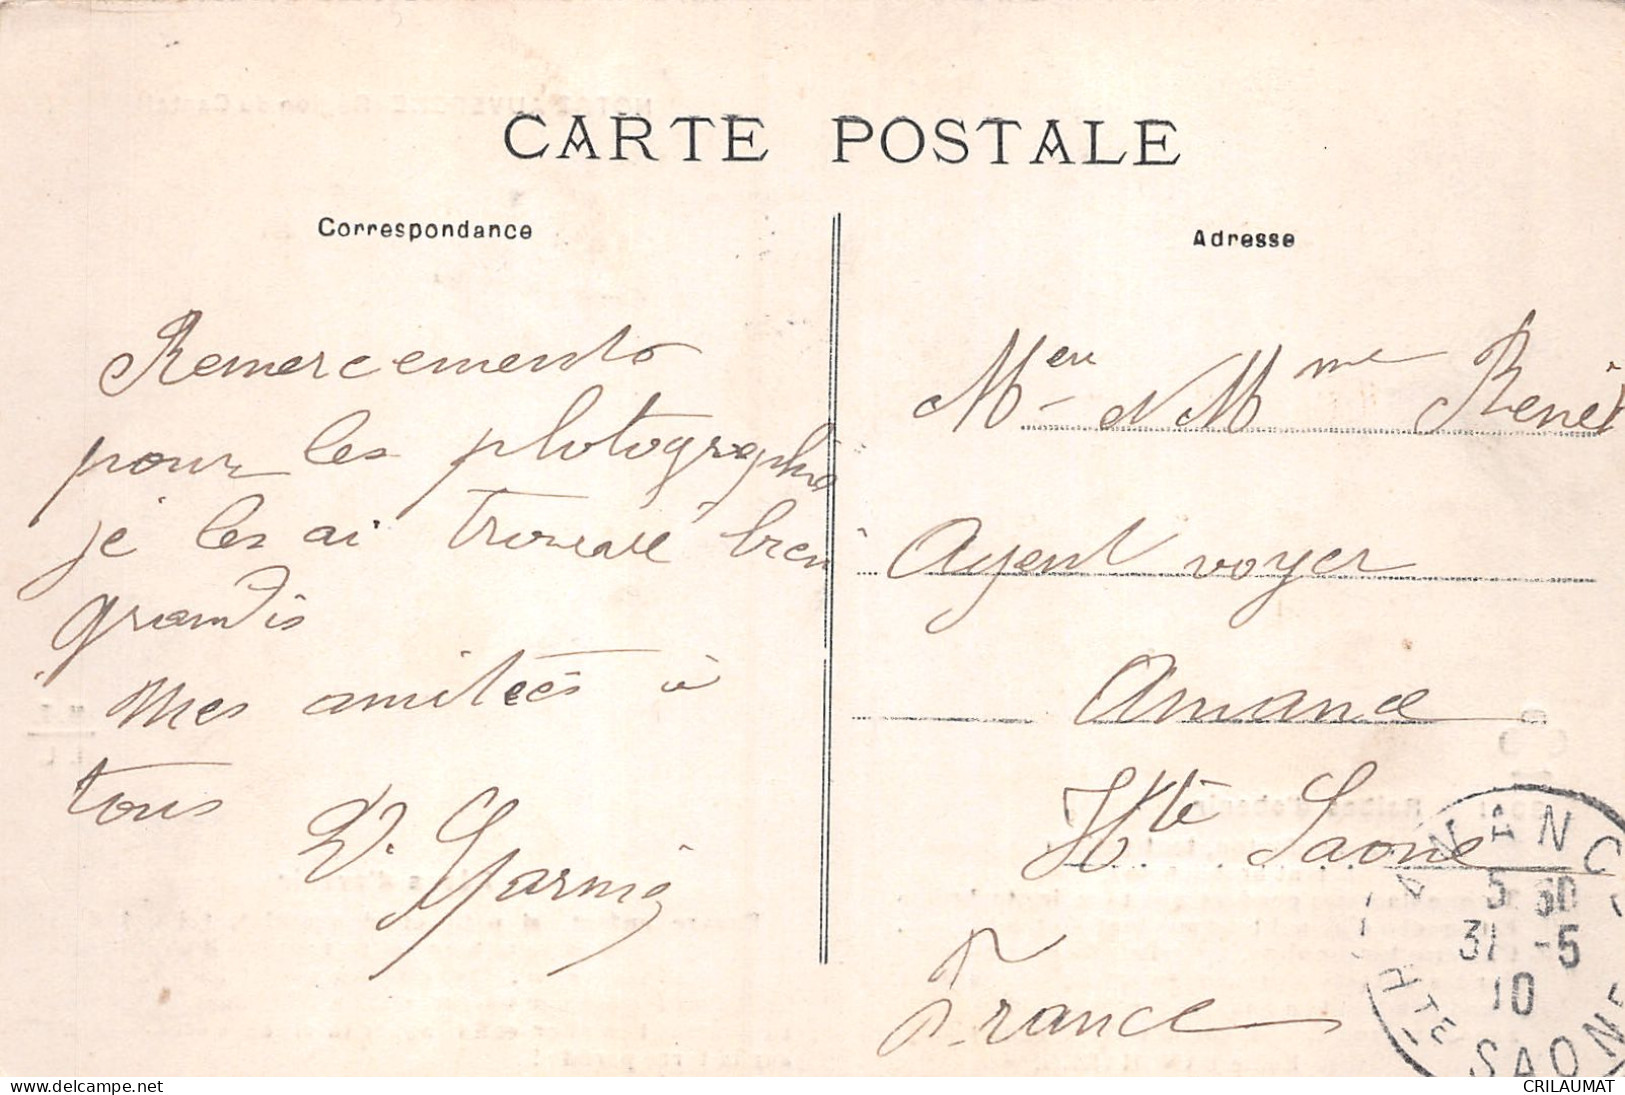 CARTE POSTALE
Correspondance
Remerciements
pour les photographies
je les ai trouvé bien
grandis
Mes amitiés à
tous
Adresse
et Mme René
Agent voyer
Amance
Hte Saône
France
AMANCE
5 30
31 -5
10
HTE SAONE
CRILAUMAT
www.delcampe.net